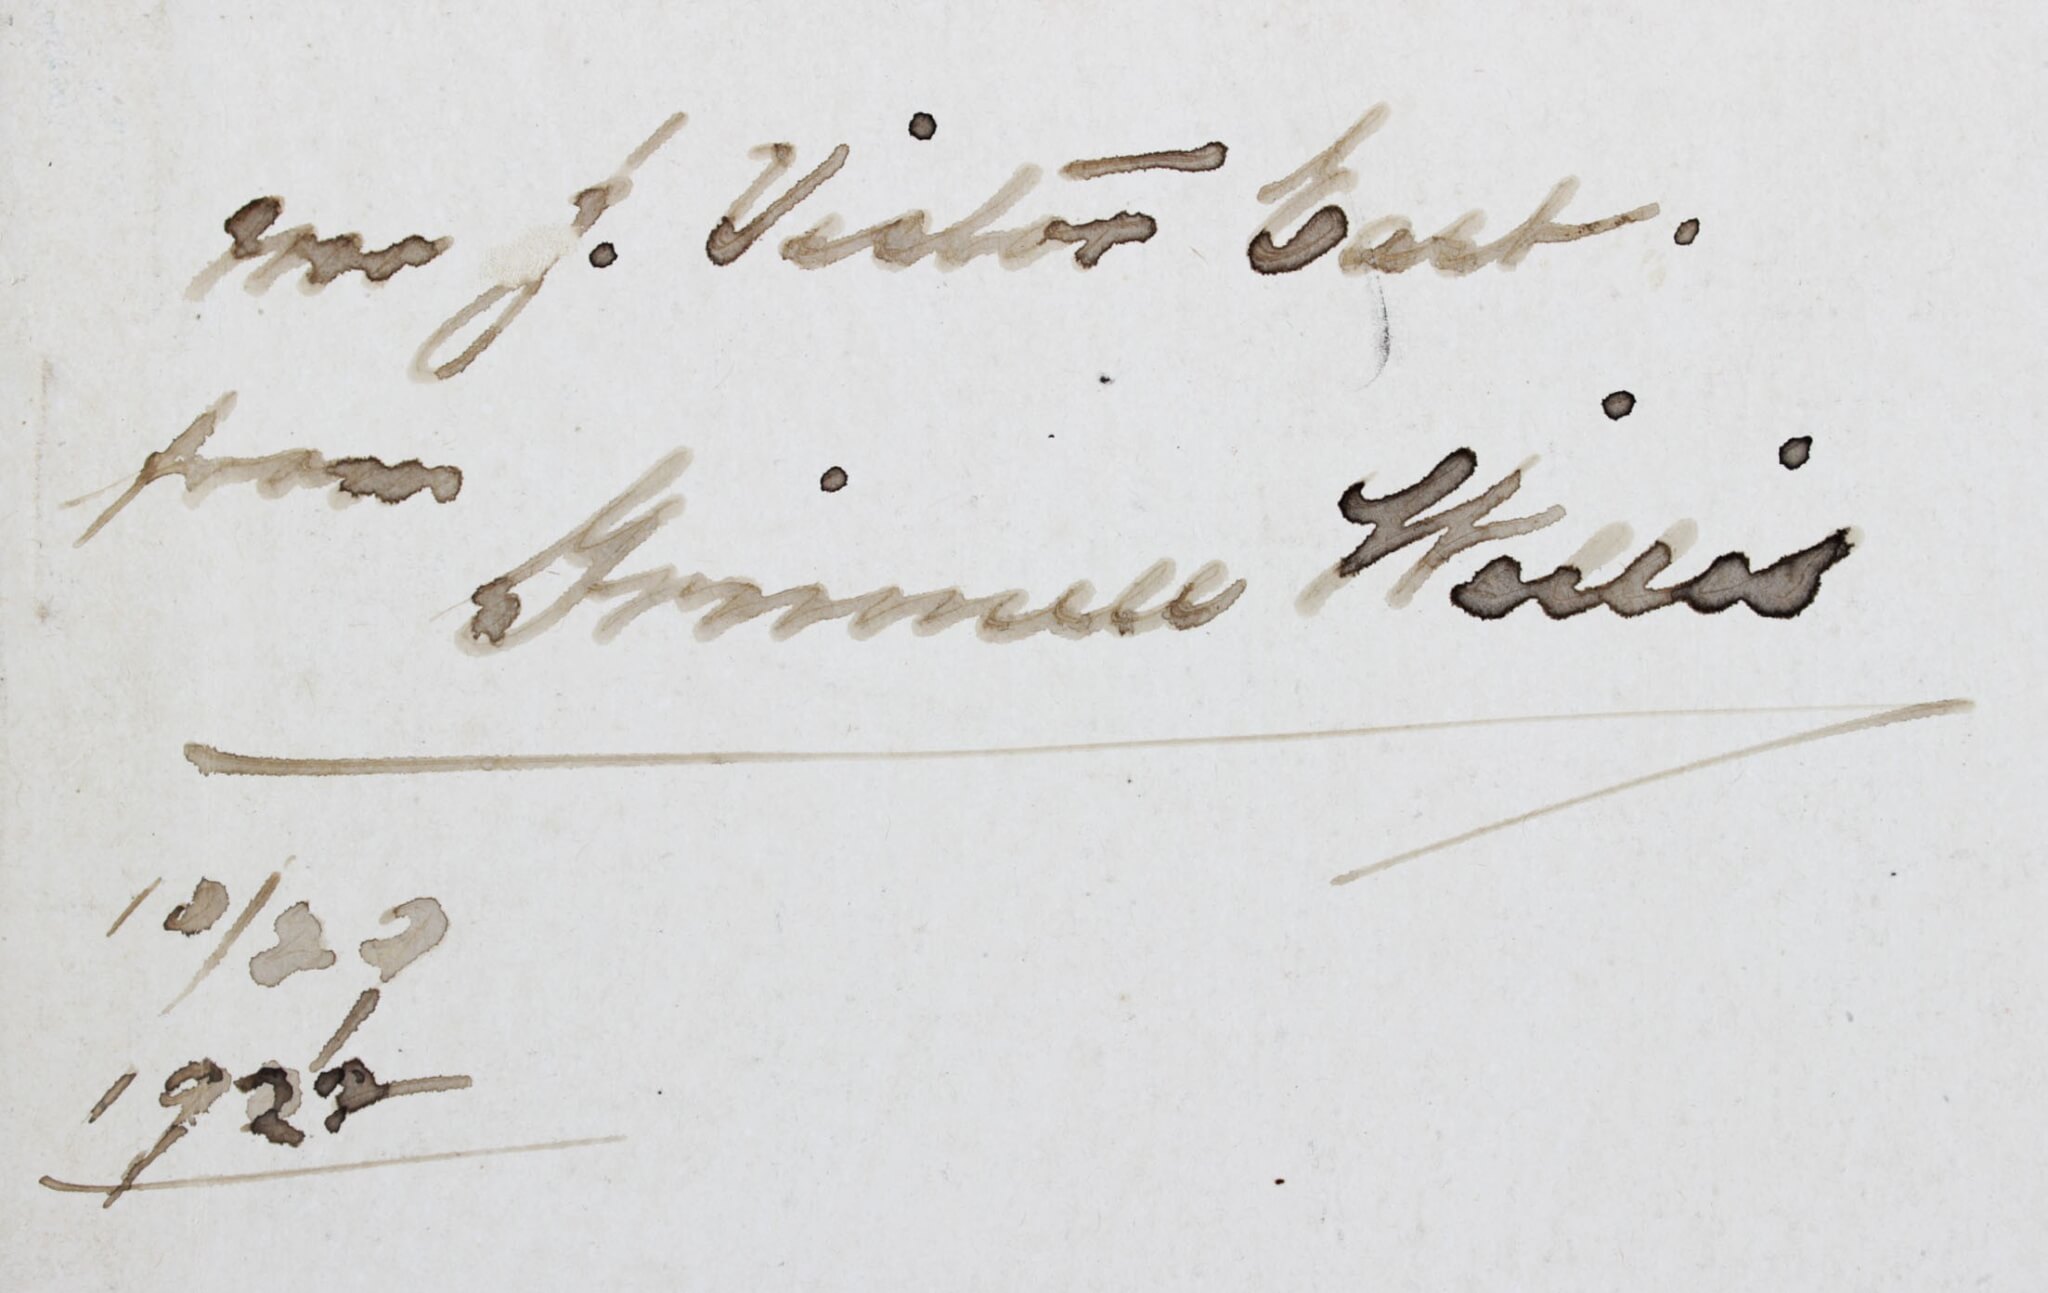 Mr J. Victor East.
from
Grinnell Willis
10/29
1922